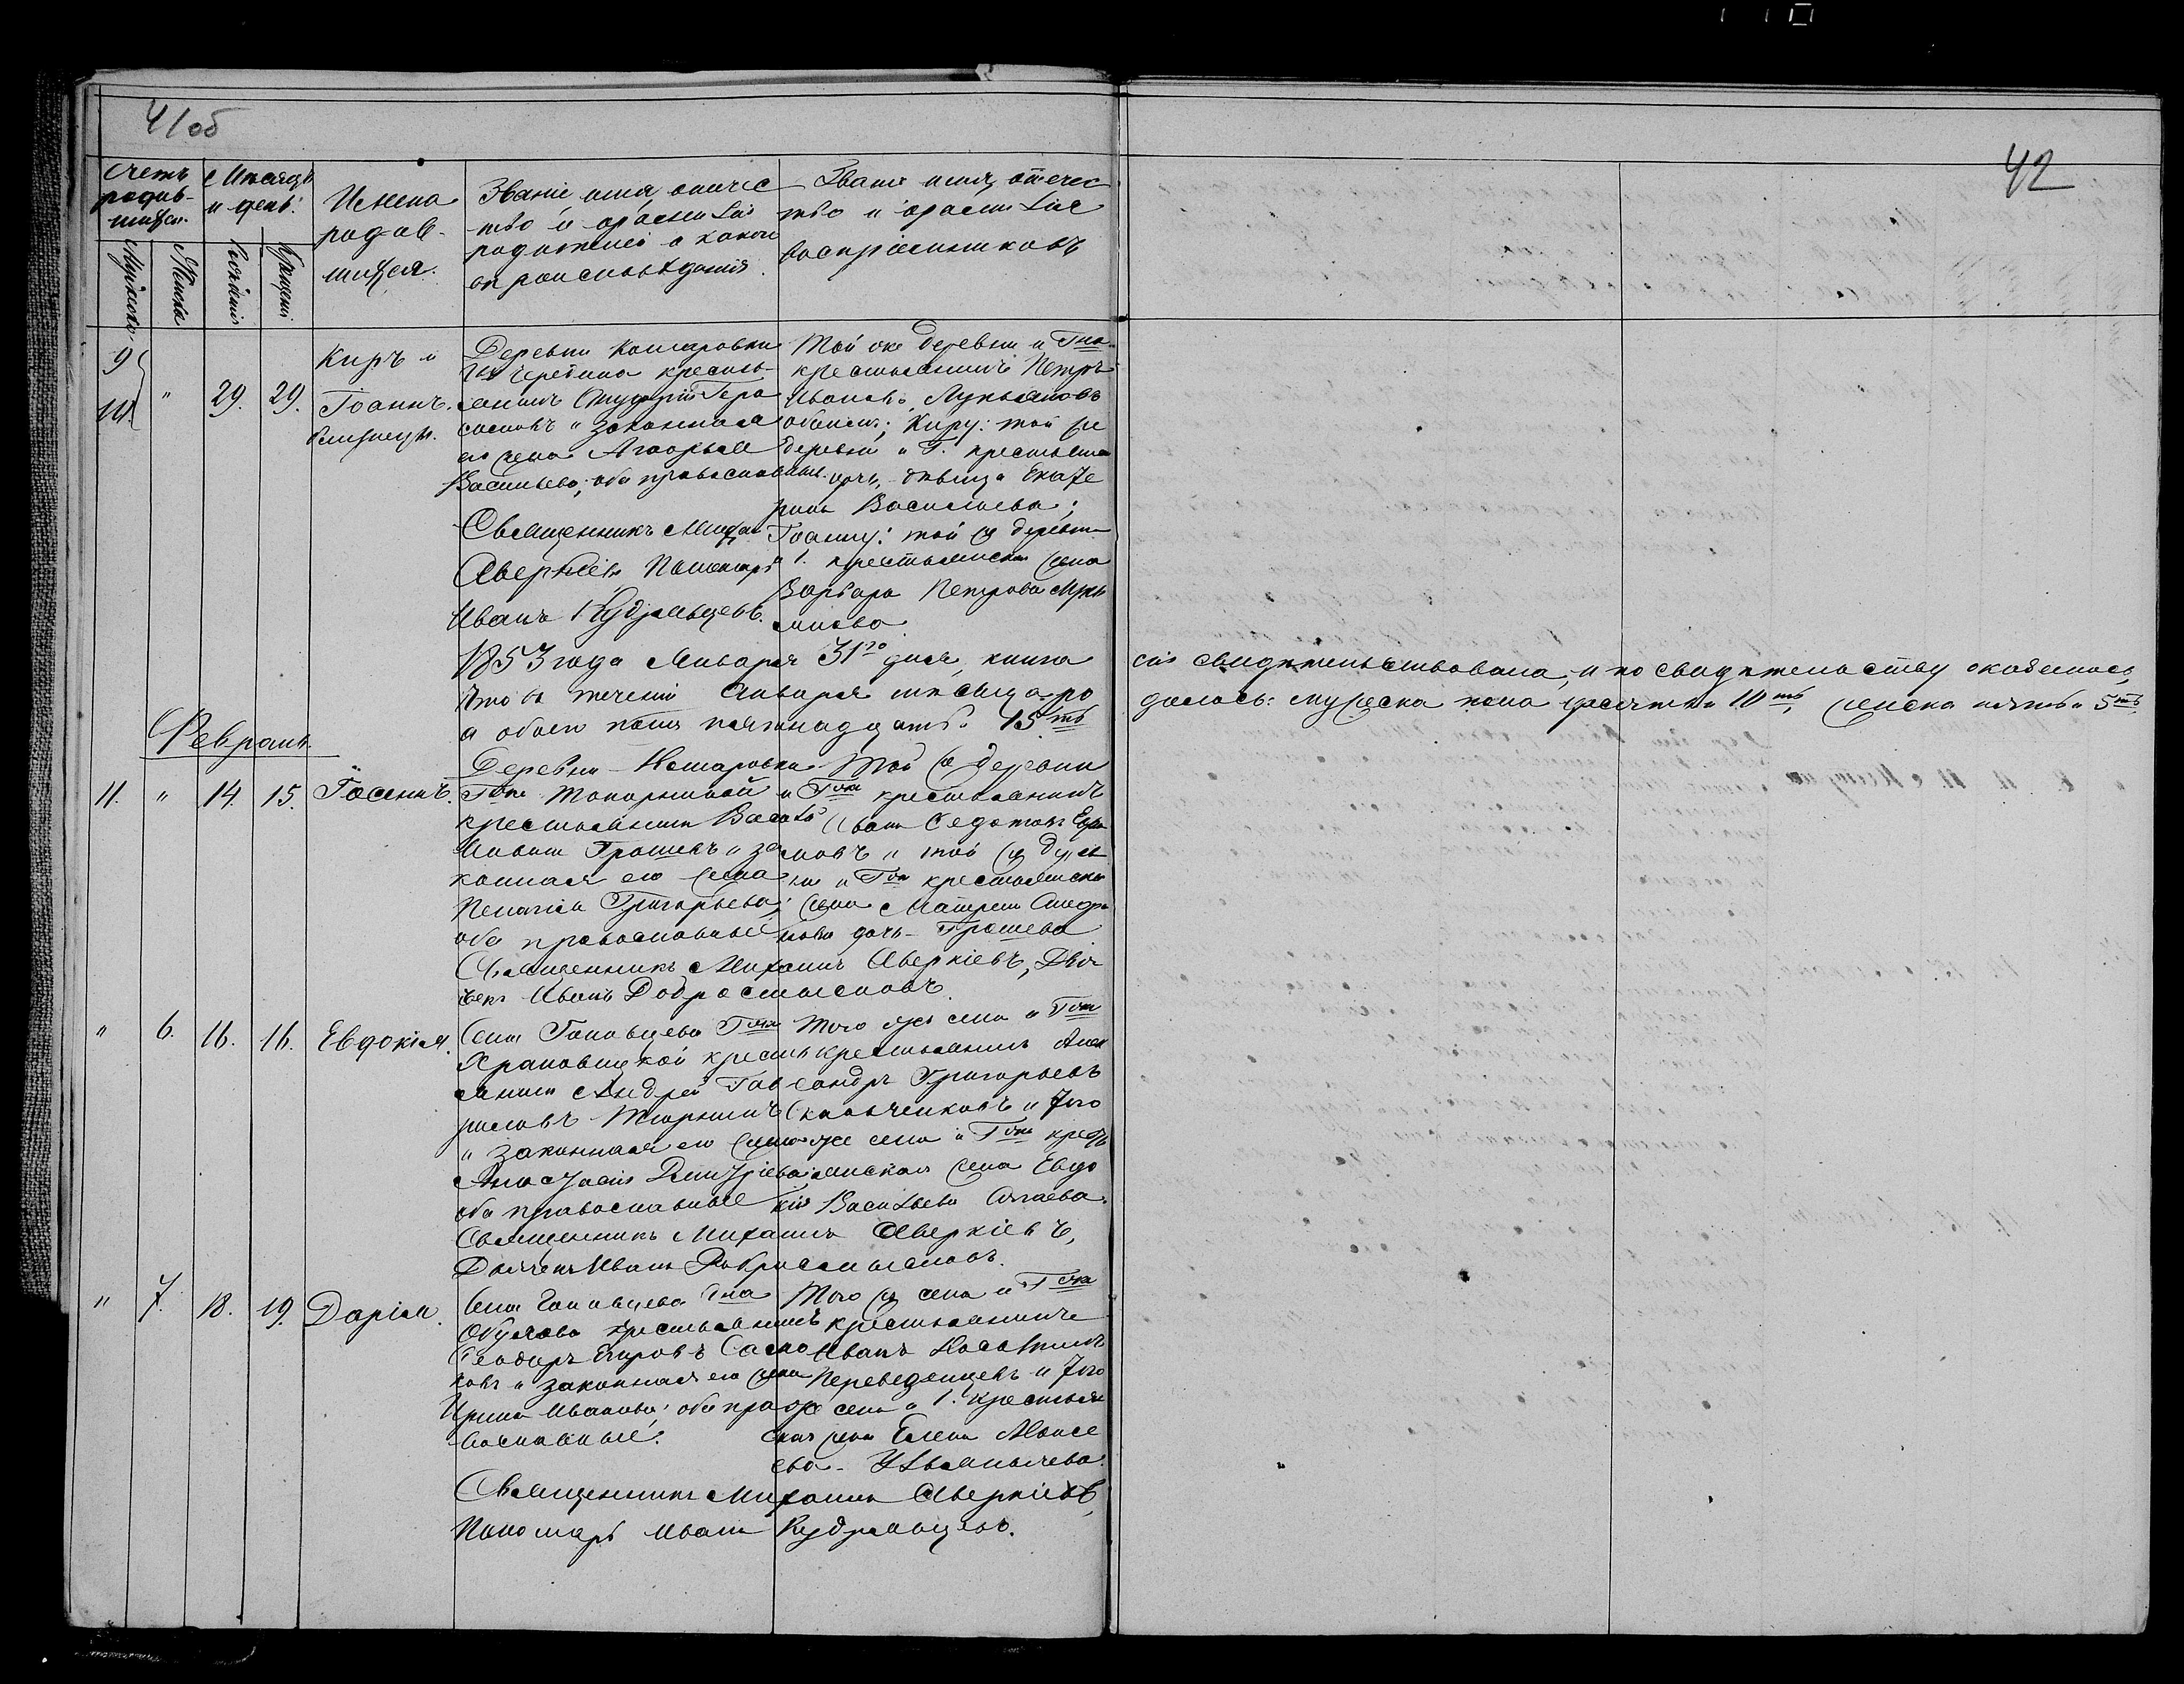 41об
42
Счетъ родив-шихся.
Мѣсяцъ и день.
Имена родив-шихся.
Званіе, имя, отечес-тво и фамилія родителей и какого вѣроисповѣданія.
Званіе имя, отечес-тво и фамилія воспріемниковъ
Мужеска
Женска
Рожденія
Крещенія
9
10.
"
29.
29.
Киръ и
Іоаннъ.
близнецы.
Деревни Комаровки
крестья-
янинъ Гера
симовъ и законная
его жена Агафья
Васильева; оба православные.
Священникъ Михаилъ
Аверкіевъ Пономарь
Иванъ Кудрявцевъ.
Той же деревни и Гна
крестьянинъ Петръ
Ивановъ Лукьяновъ
обоимъ; Киру: той же
деревни и Г. крестьянина
дочь, дѣвица Екате
рина Васильева;
Іоанну: той же деревни
и Г. крестьянска жена
Варвара Петрова Лукь
янова.
1853 года Января 31го дня, книга сія свидѣтельствована, и по свидѣтельству оказалось,
что въ теченіи Января мѣсяца ро
дилось: мужеска пола десять 10ть, женска пять 5ть,
а обоего пола пятнадцать. 15ть
Февраль.
11.
"
14.
15.
Іосифъ.
Деревни Комаровки
Гжи
крестьянинъ
Грошевъ и за
конная его жена
Пелагія Григорьева;
оба православные
Той же деревни
и Гжи крестьянинъ
Иванъ Седотовъ Ефи
мовъ и той же дерев
ни и Гжи крестьянска
жена Матрена
нова дочь Грошева
Священникъ Михаилъ Аверкіевъ, Дья
чекъ Иванъ Добросмысловъ.
"
6.
16.
16.
Евдокія.
Села Головцева Гжи
Храповицкой кресть
янинъ Андрей Гав
риловъ Тюринъ
и законная его жена
Анастасія Дмитріева
оба православные
Того же села и Гжи
крестьянинъ Алек
сандръ Григорьевъ
Скальченковъ и того
же села и Гжи кресть
янская жена Евдо
кія Васильева
Священникъ Михаилъ Аверкіевъ,
Дьячекъ Иванъ Добросмысловъ.
"
7.
18.
19.
Дарія.
Села Головцева Гна
Обухова крестьянинъ
Феодоръ Егоровъ
ковъ и законная его жена
Ирина Иванова; оба пра
вославные.
Того же села и Гжи
крестьянинъ
Иванъ
Переведенцевъ и того
же села и Г. крестьян
ская жена Елена Моисе
ева
Священникъ Михаилъ Аверкіевъ,
Пономарь Иванъ Кудрявцевъ.